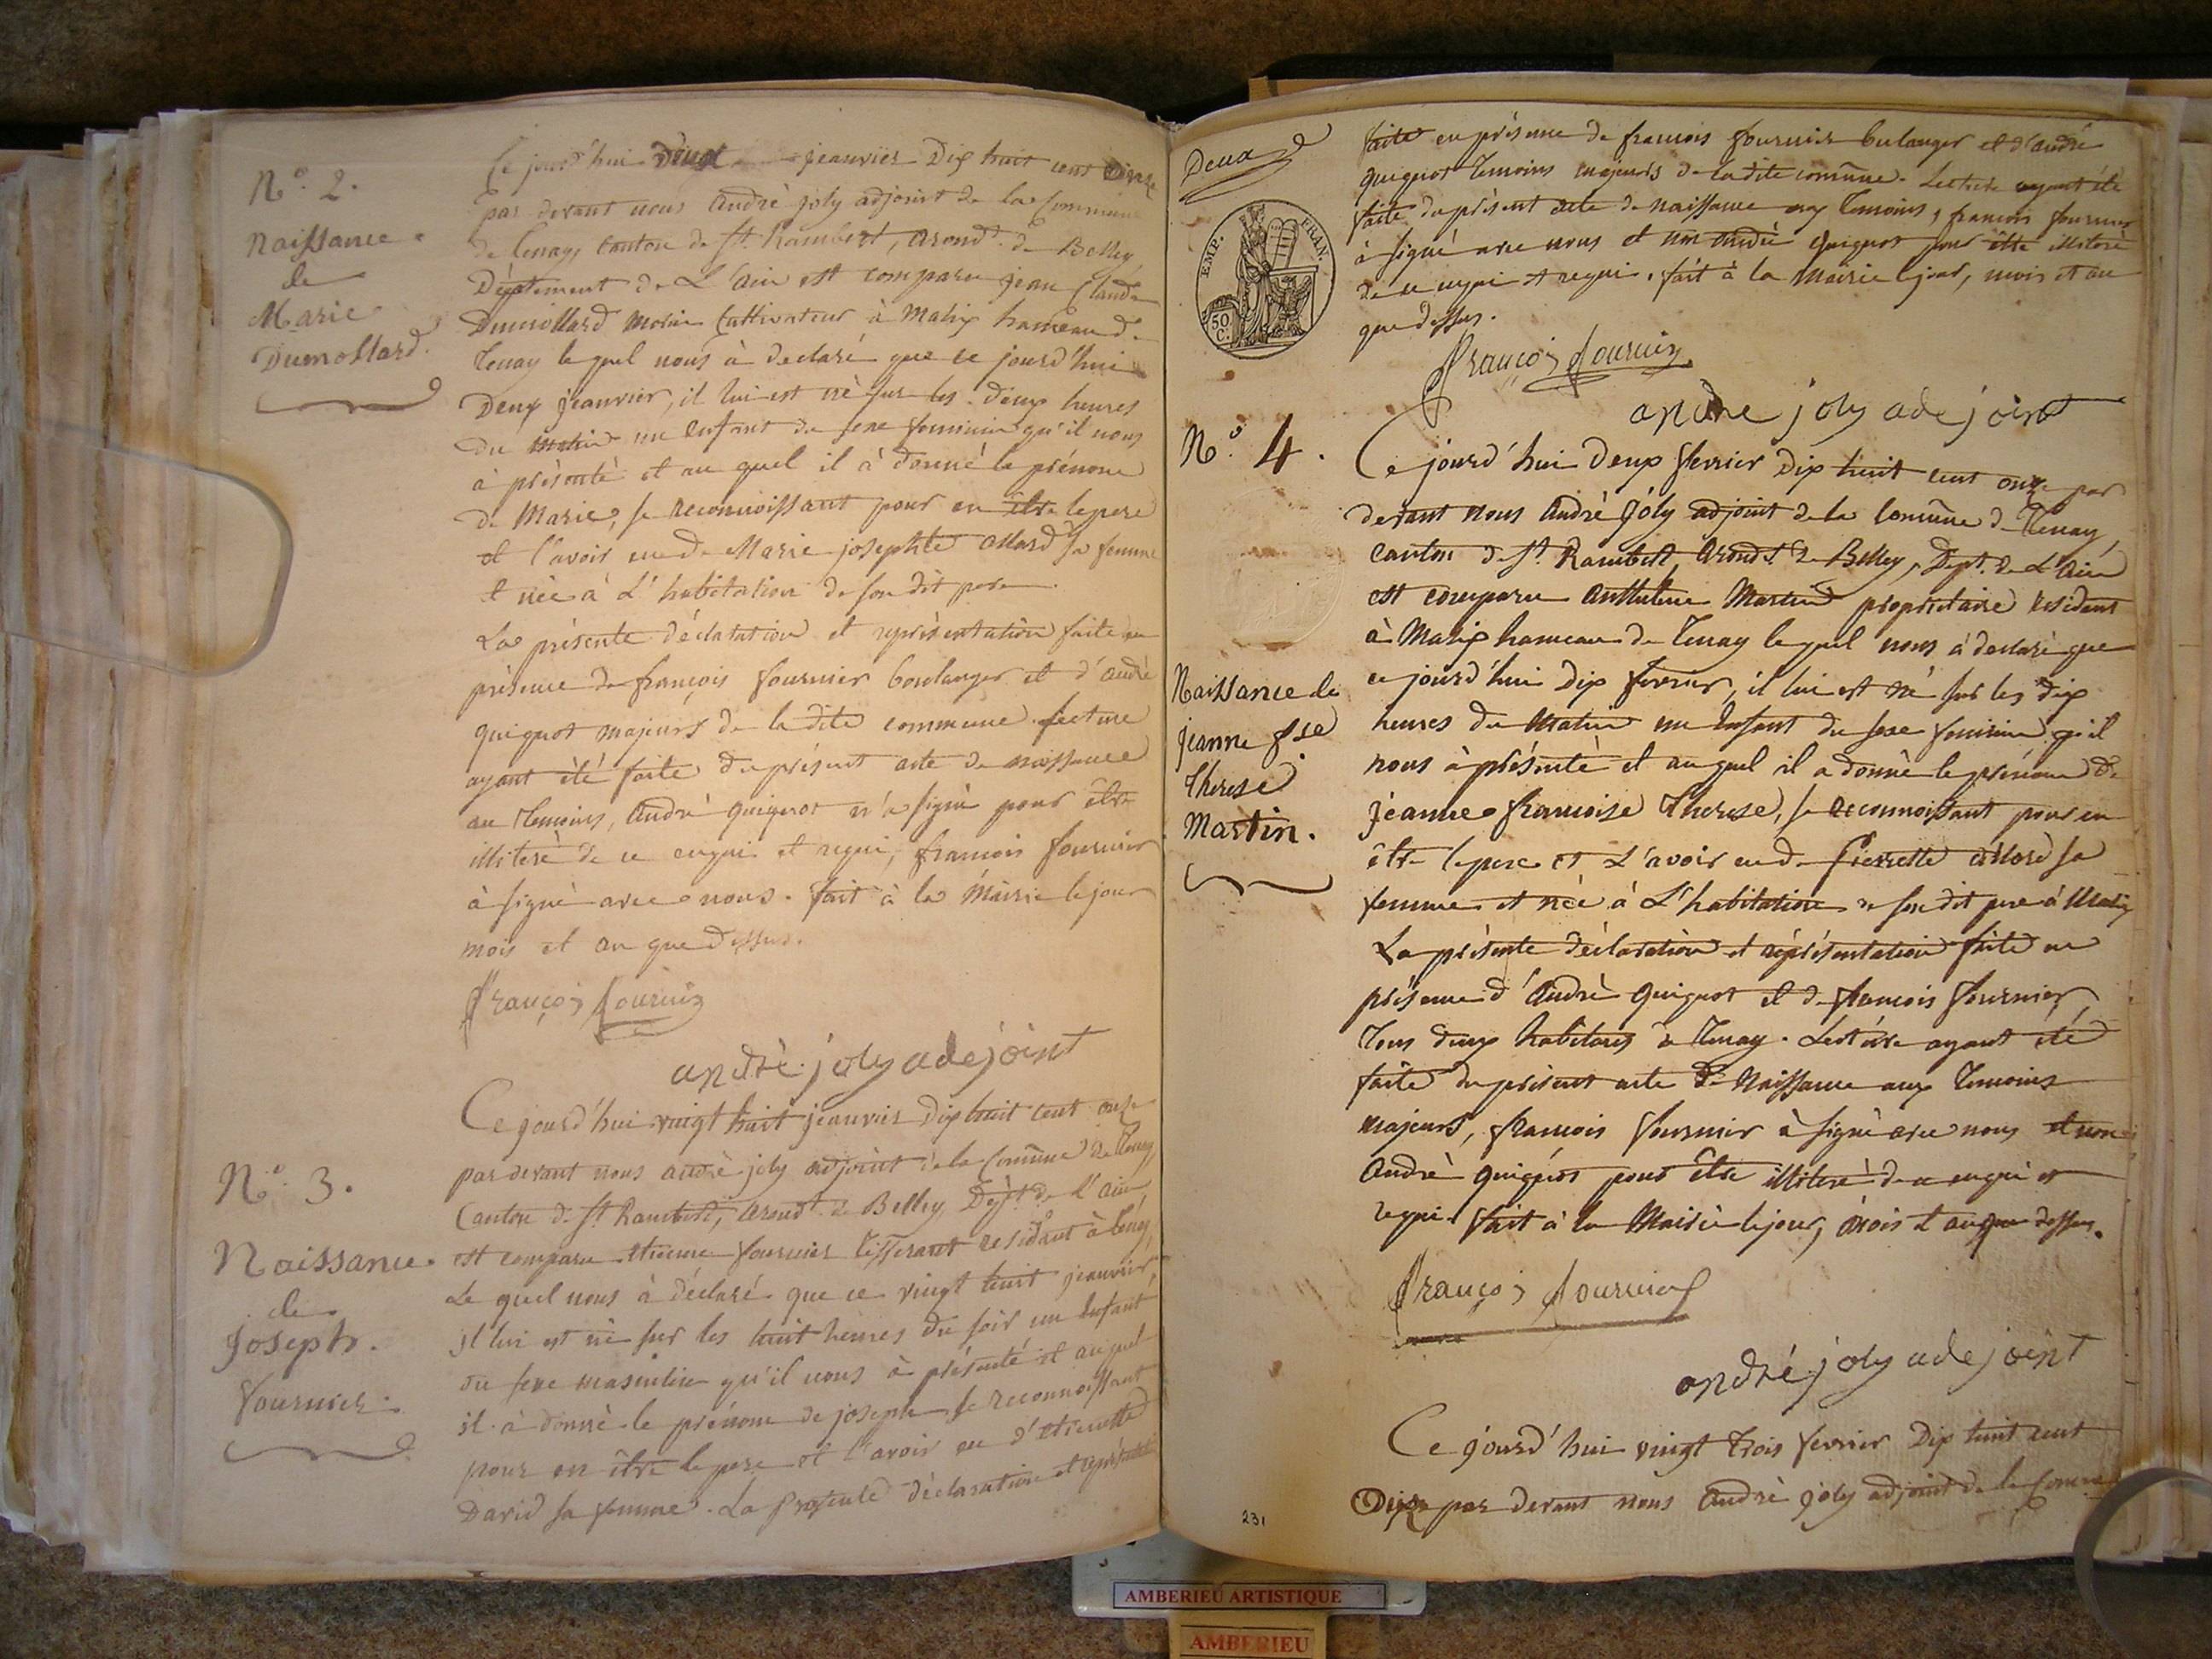 N.o 2.
Naissance
de
Marie
Dumollard.
Ce jourd'hui Deux jeanvier Dix huit cent Onze
par devant nous André joly adjoint de la Commune
de Tenay, Canton de St. Rambert, arond.t de Belley
Département de L'ain est comparu jean Claude
Dumollard Cultivateur à Malix hameau de
Tenay le quel nous à declaré que ce jourd'hui
Deux jeanvier, il lui est né sur les Deux heures
du Matin un enfant du sexe feminin qu'il nous
à présenté et au quel il à donné le prénom
de Marie, se reconnoissant pour en être le pere
et l'avoir eu de Marie josephte allard sa femme
et née à L'habitation de son dit pere.
La présente déclaration et représentation faite en
présence de françois fournier boulanger et d'andré
quignot majeurs de la dite commune. Lecture
ayant été faite du présent acte de naissance
au temoins, André quignot n'a signé pour être
illiteré de ce enqui et requi, francois fournier
à signé avec nous. fait à la Mairie le jour
mois et an que dessus.
françois fournier
andré joly adejoint
N.o 3.
Naissance
de
Joseph
fournier
Ce jourd'hui vingt huit jeanvier Dix huit cent onze
par devant nous andré joly adjoint de la Comune de Tenay
Canton de St. Rambert, Arond.t de Belley Dept. de L'ain
est comparu etienne fournier tisserant residant à tenay,
Le quel nous à déclaré que ce vingt huit jeanvier,
il lui est né sur les huit heures du soir un enfant
du sexe masculin qu'il nous à présenté et auquel
il à donné le prénom de joseph se reconnoissant
pour en être le pere et l'avoir eu d'etiennette
David sa femme. La présente déclaration et représentation
Deux
EMP. FRAN.
50
C.
faite en présence de francois fournier bulanger et d'andré
quignot temoins majeurs de la dite comune. Lecture ayant été
faite du présent acte de naissance aux temoins, francois fournier
à signé avec nous et non andré quignot pour être illiteré
de ce enqui et requi. fait à la Mairie le jour, mois et an
que dessus.
françois fournier
andre joly adejoint
N.o 4.
Naissance de
jeanne fse
Therese
Martin.
Ce jourd'hui Deux fevrier Dix huit cent onze par
devant nous André Joly adjoint de la Comune de Tenay,
Canton de St. Rambert, Arond.t de Belley, Dept. de L'ain
est comparu Anthelme Martin propriétaire residant
à Malix hameau de Tenay le quel nous à declaré que
ce jourd'hui Dix fevrier, il lui est né sur les dix
heures du Matin un Enfant du sexe feminin qu'il
nous à présenté et au quel il a donné le prénom de
jeanne francoise Therese, se reconnoissant pour en
être le pere et L'avoir eu de Pierrette allard sa
femme et née à L'habitation de son dit pere à Malix
La présente déclaration et représentation faite en
présence d'André quignot et de francois fournier,
Tous deux habitans à Tenay. Lecture ayant été
faite du présent acte de Naissance aux temoins
majeurs, francois fournier à signé avec nous et non
André quignot pour être illiteré de ce enqui et
requi. fait à la Mairie le jour, mois et an que dessus.
françois fournier
andré joly adejoint
Ce jourd'hui vingt trois fevrier Dix huit cent
Onze par devant nous André joly adjoint de la Comune
231
AMBERIEU ARTISTIQUE
AMBERIEU